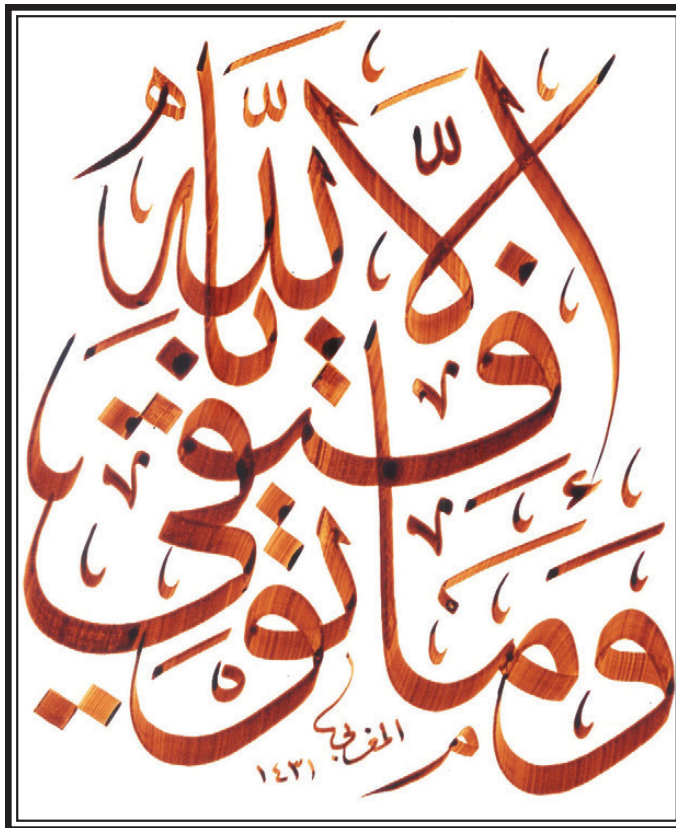 وَمَا تَوْفِيقِي إِلَّا بِاللَّهِ
المغربي
١٤٣١